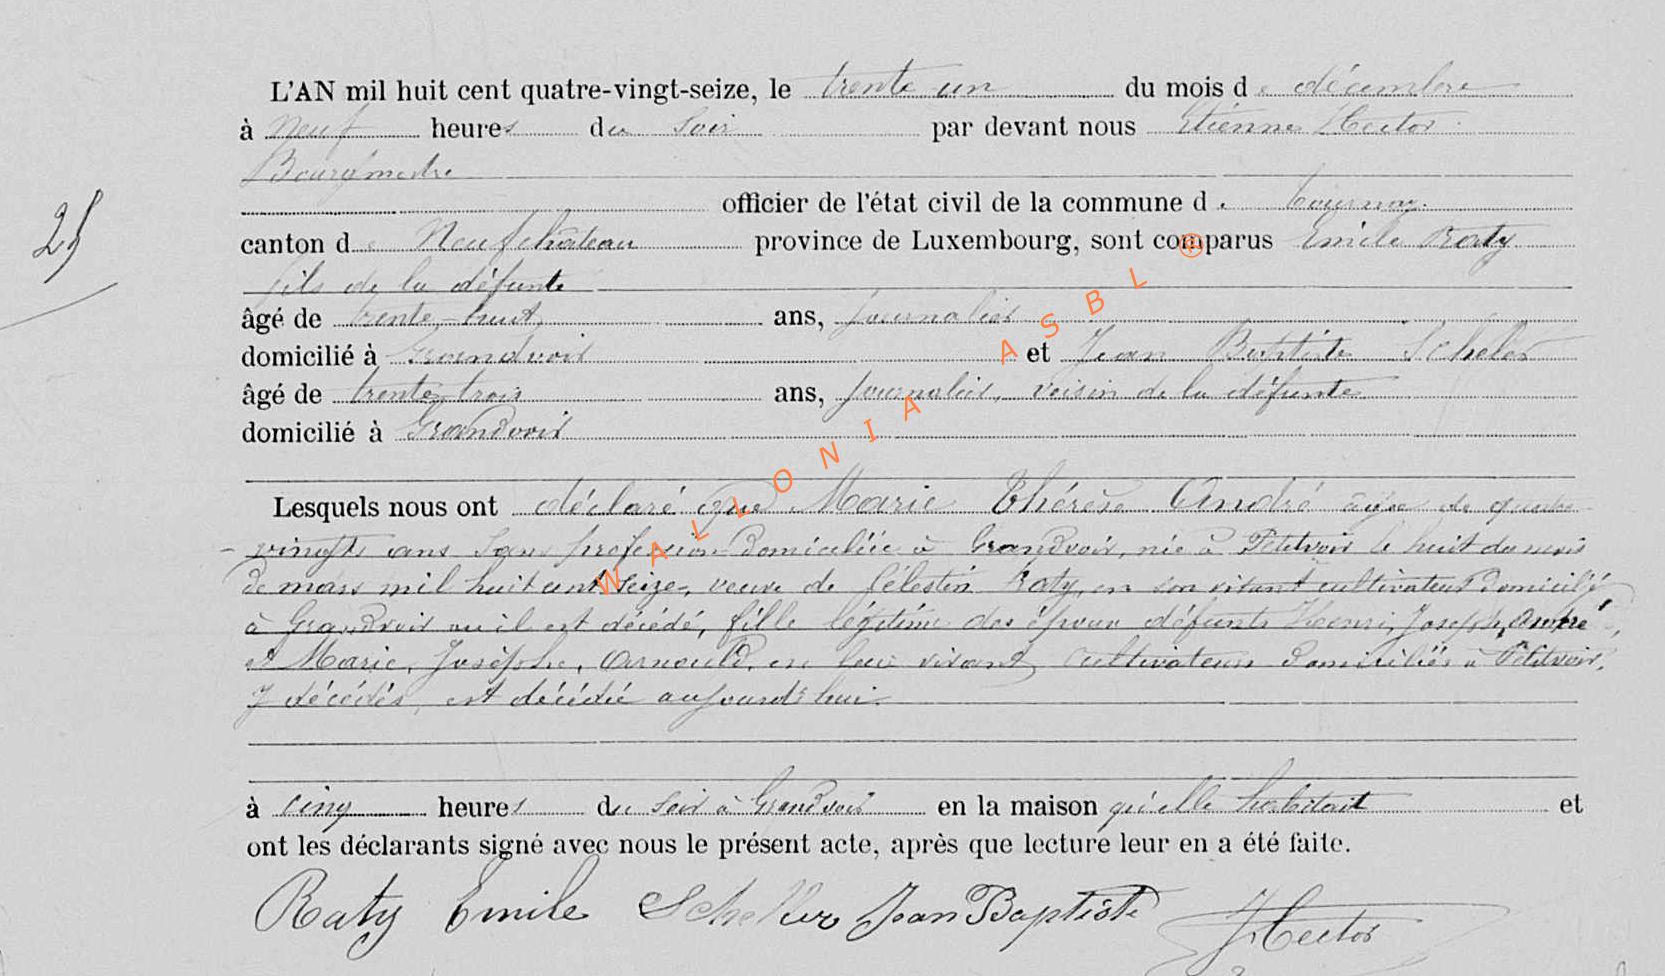 L'AN mil huit cent quatre-vingt-seize, le trente un du mois de décembre
à neuf heures du soir par devant nous Etienne Hector
Bourgmestre
officier de l'état civil de la commune de Tournay
25
canton de Neufchâteau province de Luxembourg, sont comparus Emile Raty
fils de la défunte
âgé de trente-huit ans, journalier
domicilié à Grandvoir et Jean Baptiste Scheler
âgé de trente trois ans, journalier, voisin de la défunte
domicilié à Grandvoir
Lesquels nous ont déclaré que Marie Thérèse André âgée de quatre
vingts ans sans profession domiciliée à Grandvoir, née à Petitvoir le huit du mois
de mars mil huit cent seize, veuve de Célestin Raty, en son vivant cultivateur domicilié
à Grandvoir où il est décédé, fille légitime des époux défunts Henri, Joseph, André,
et Marie, Josèphe, Arnould, en leur vivant cultivateurs domiciliés à Petitvoir,
y décédés, est décédée aujourd'hui.
à cinq heures du soir à Grandvoir en la maison qu'elle habitait et
ont les déclarants signé avec nous le présent acte, après que lecture leur en a été faite.
Raty Emile Scheller Jean Baptiste Hector
WALLONIA ASBL ®